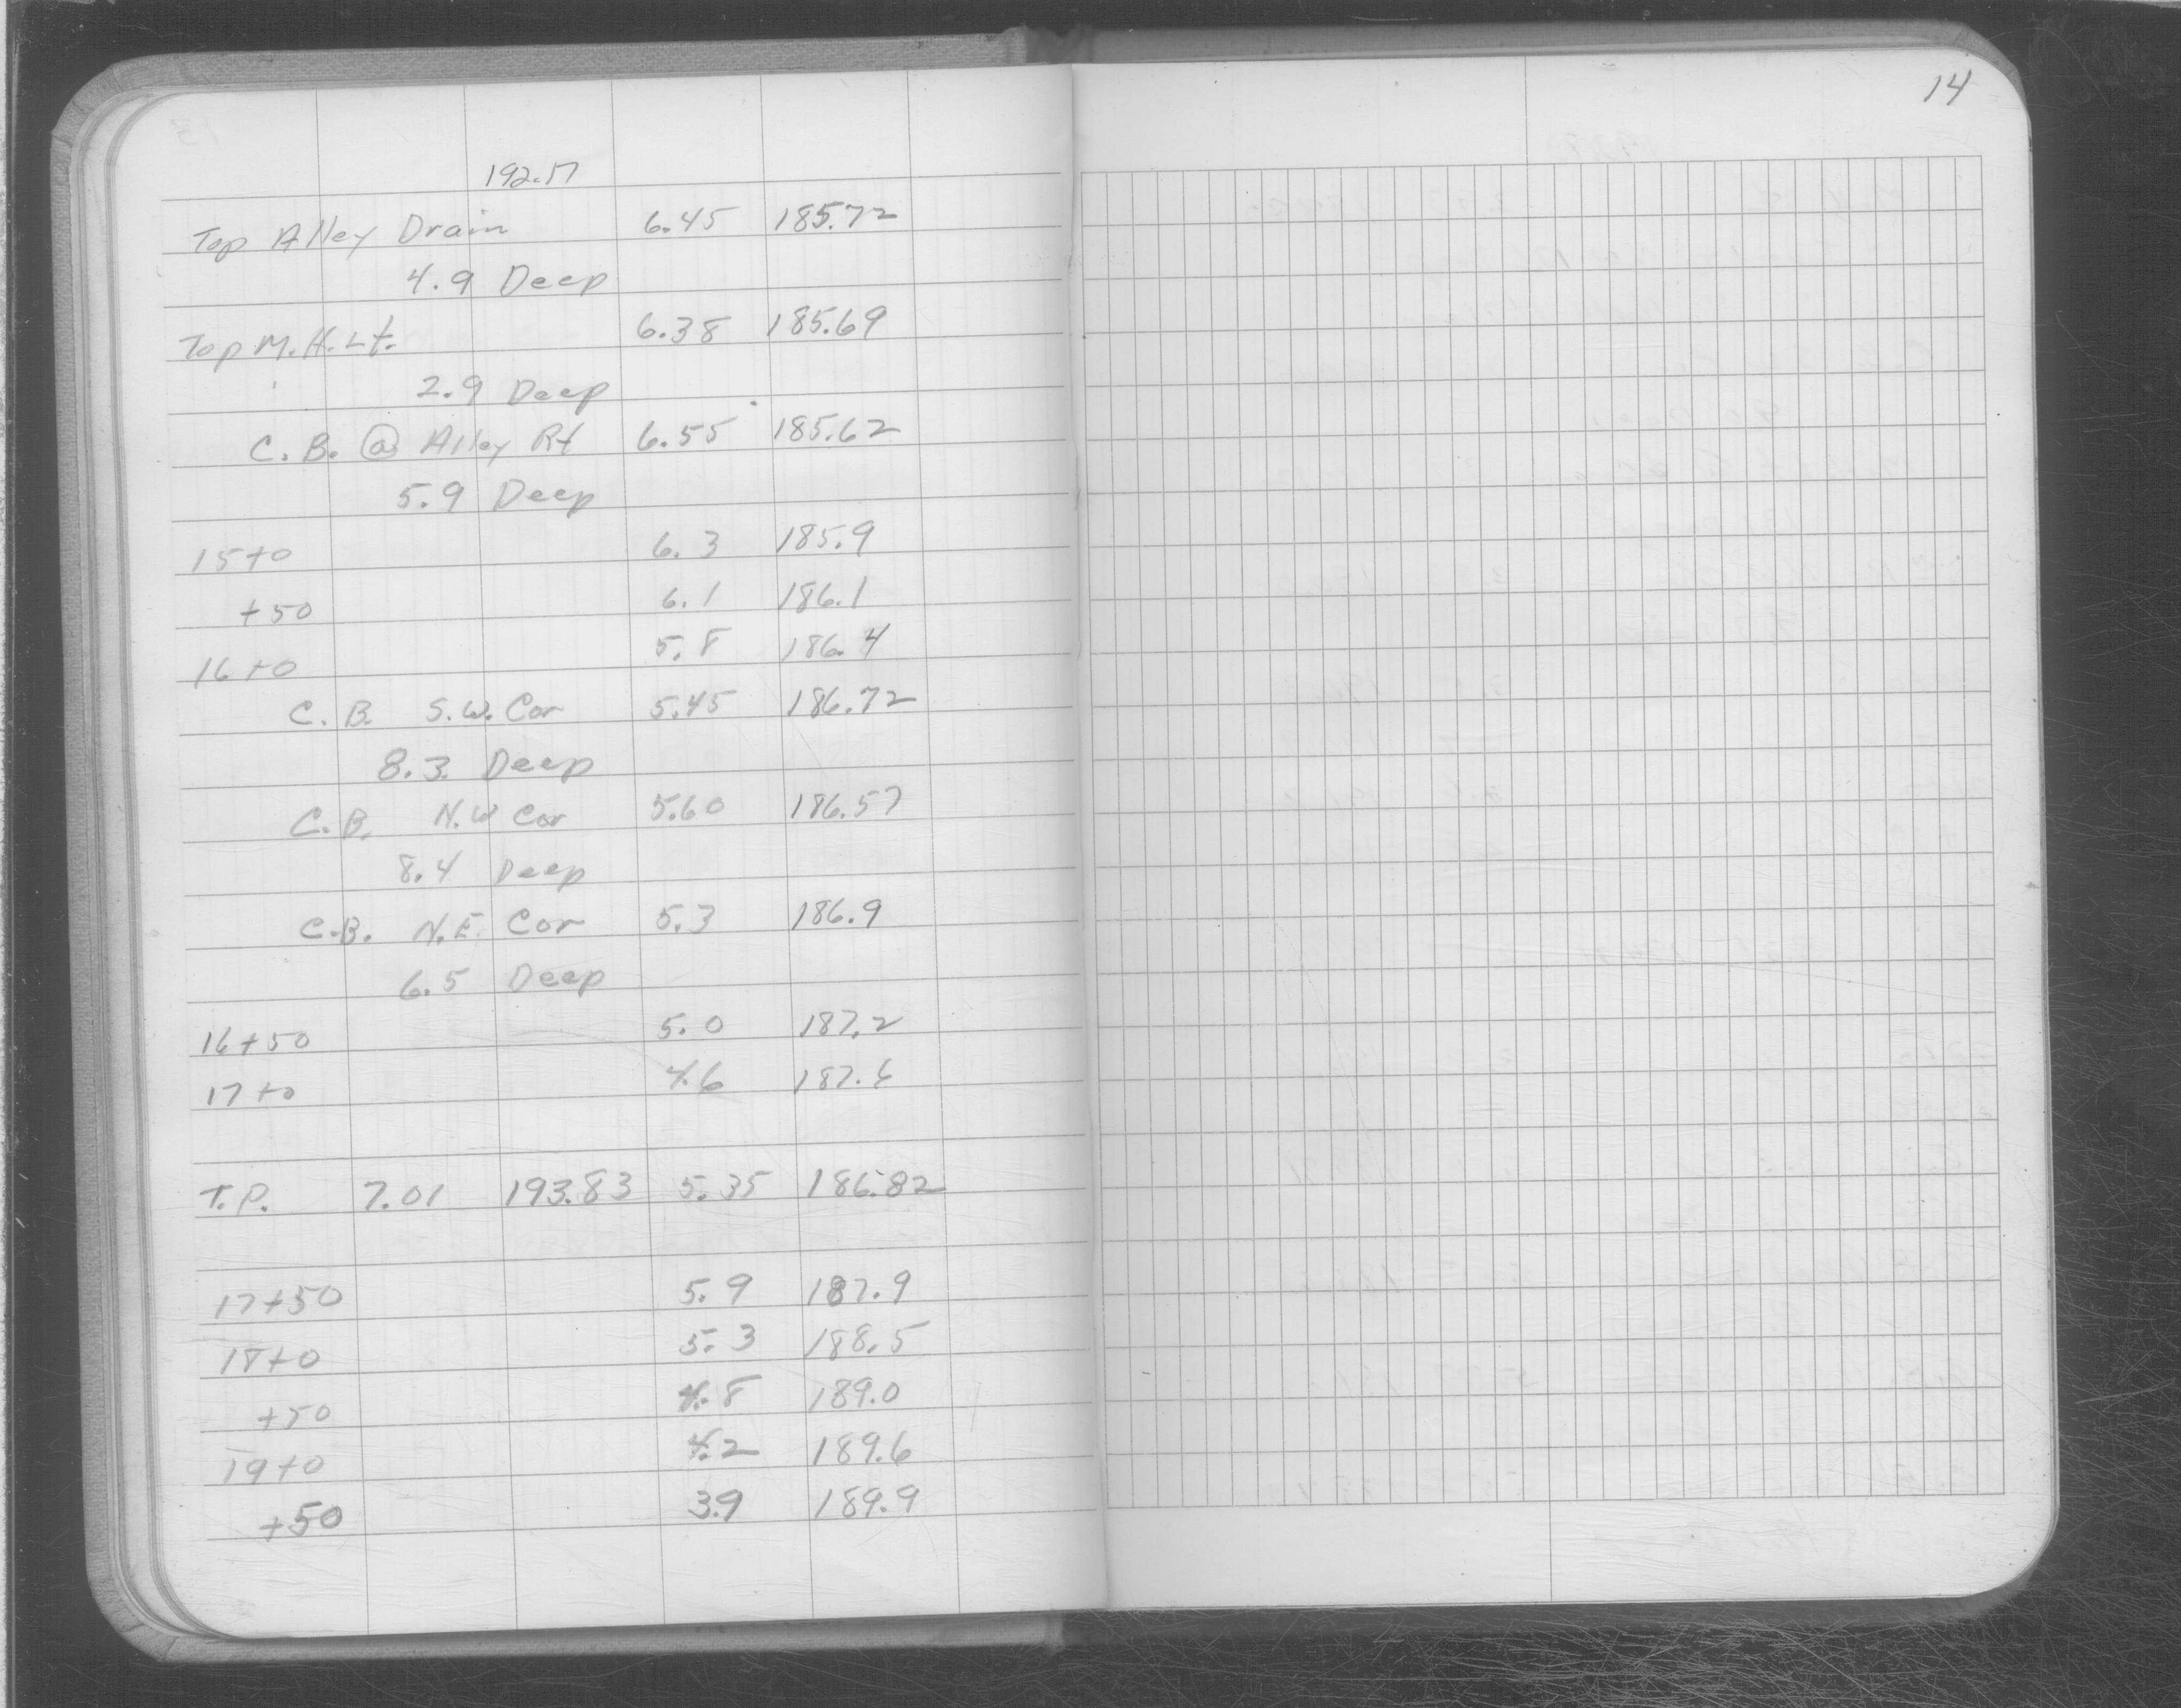 14
192.17
Top Alley Drain 6.45 185.72
4.9 Deep
Top M.H. Lt. 6.38 185.69
2.9 Deep
C.B. @ Alley Rt 6.55 185.62
5.9 Deep
15+0 6.3 185.9
+50 6.1 186.1
16+0 5.8 186.4
C.B. S.W. Cor 5.45 186.72
8.3 Deep
C.B. N.W Cor 5.60 186.57
8.4 Deep
C.B. N.E. Cor 5.3 186.9
6.5 Deep
16+50 5.0 187.2
17+0 4.6 187.6
T.P. 7.01 193.83 5.35 186.82
17+50 5.9 187.9
18+0 5.3 188.5
+50 4.8 189.0
19+0 4.2 189.6
+50 3.9 189.9